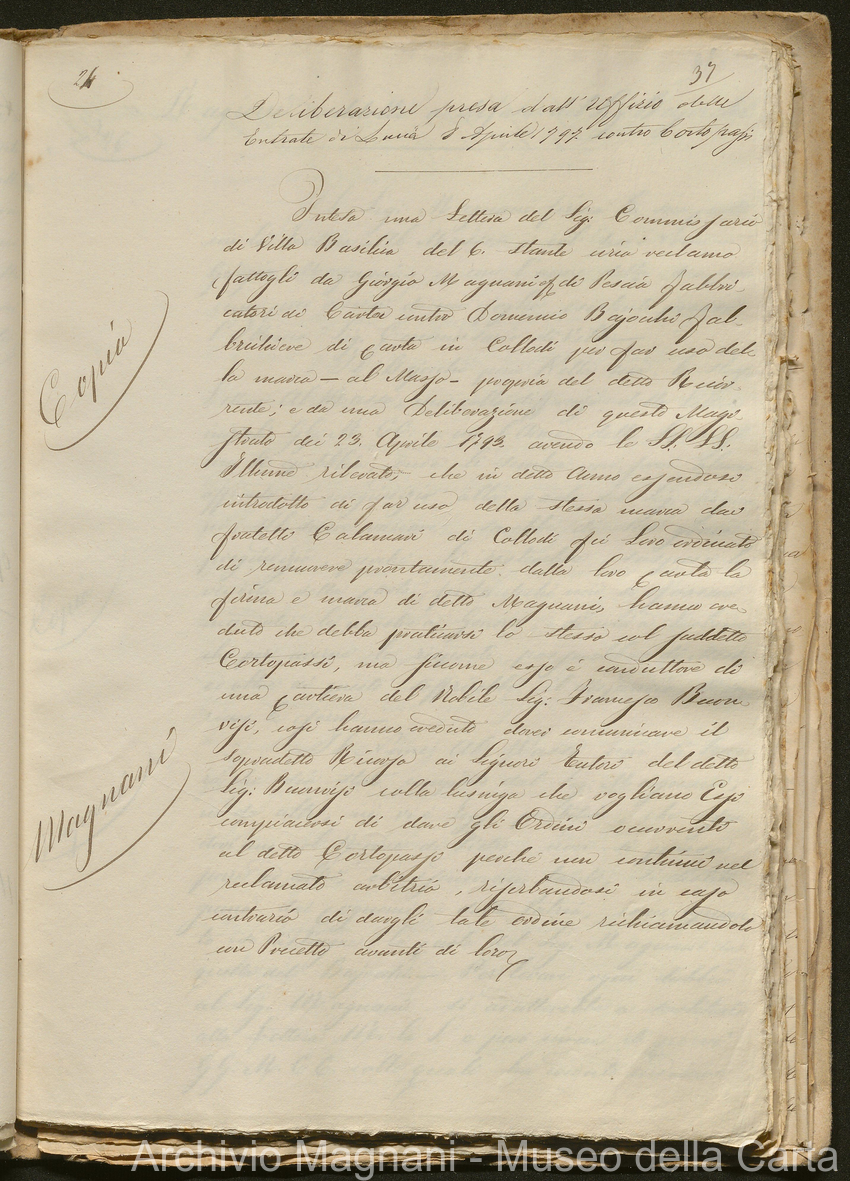 24.
37
Deliberazione presa dall' Uffizio delle
Entrate di Lucca 8 Aprile 1797. contro Cortopassi
Intesa una Lettera del Sig: Commissario
di Villa Basilica del 6. stante circa reclamo
fattogli da Giorgio Magnani di Pescia fabbri-
catori di Carta contro Domenico Bajocchi fab-
briciere di carta in Collodi per far uso del
la marca — al Masso — propria del detto Ricor-
rente; e da una Deliberazione di questo Magi
strato dei 23. Aprile 1793. avendo le SS. LL.
Illme rilevato, che in detto Anno essendosi
introdotto di far uso della stessa marca dai
fratelli Calamari di Collodi fu Loro ordinato
di rimuovere prontamente dalla loro Carta la
firma e marca di detto Magnani, hanno cre-
duto che debba praticarsi lo stesso col suddetto
Cortopassi, ma siccome esso è conduttore di
una Cartiera del Nobile Sig: Francesco Buon
visi, così hanno creduto doversi comunicare il
sopradetto Ricorso ai Signori Tutori del detto
Sig: Buonvisi colla lusinga che vogliano Essi
compiacersi di dare gli Ordini occorrenti
al detto Cortopassi perché non continui nel
reclamato arbitrio, riserbandosi in caso
contrario di dargli tale ordine richiamandolo
con Precetto avanti di loro
Copia
Magnani
Archivio Magnani - Museo della Carta